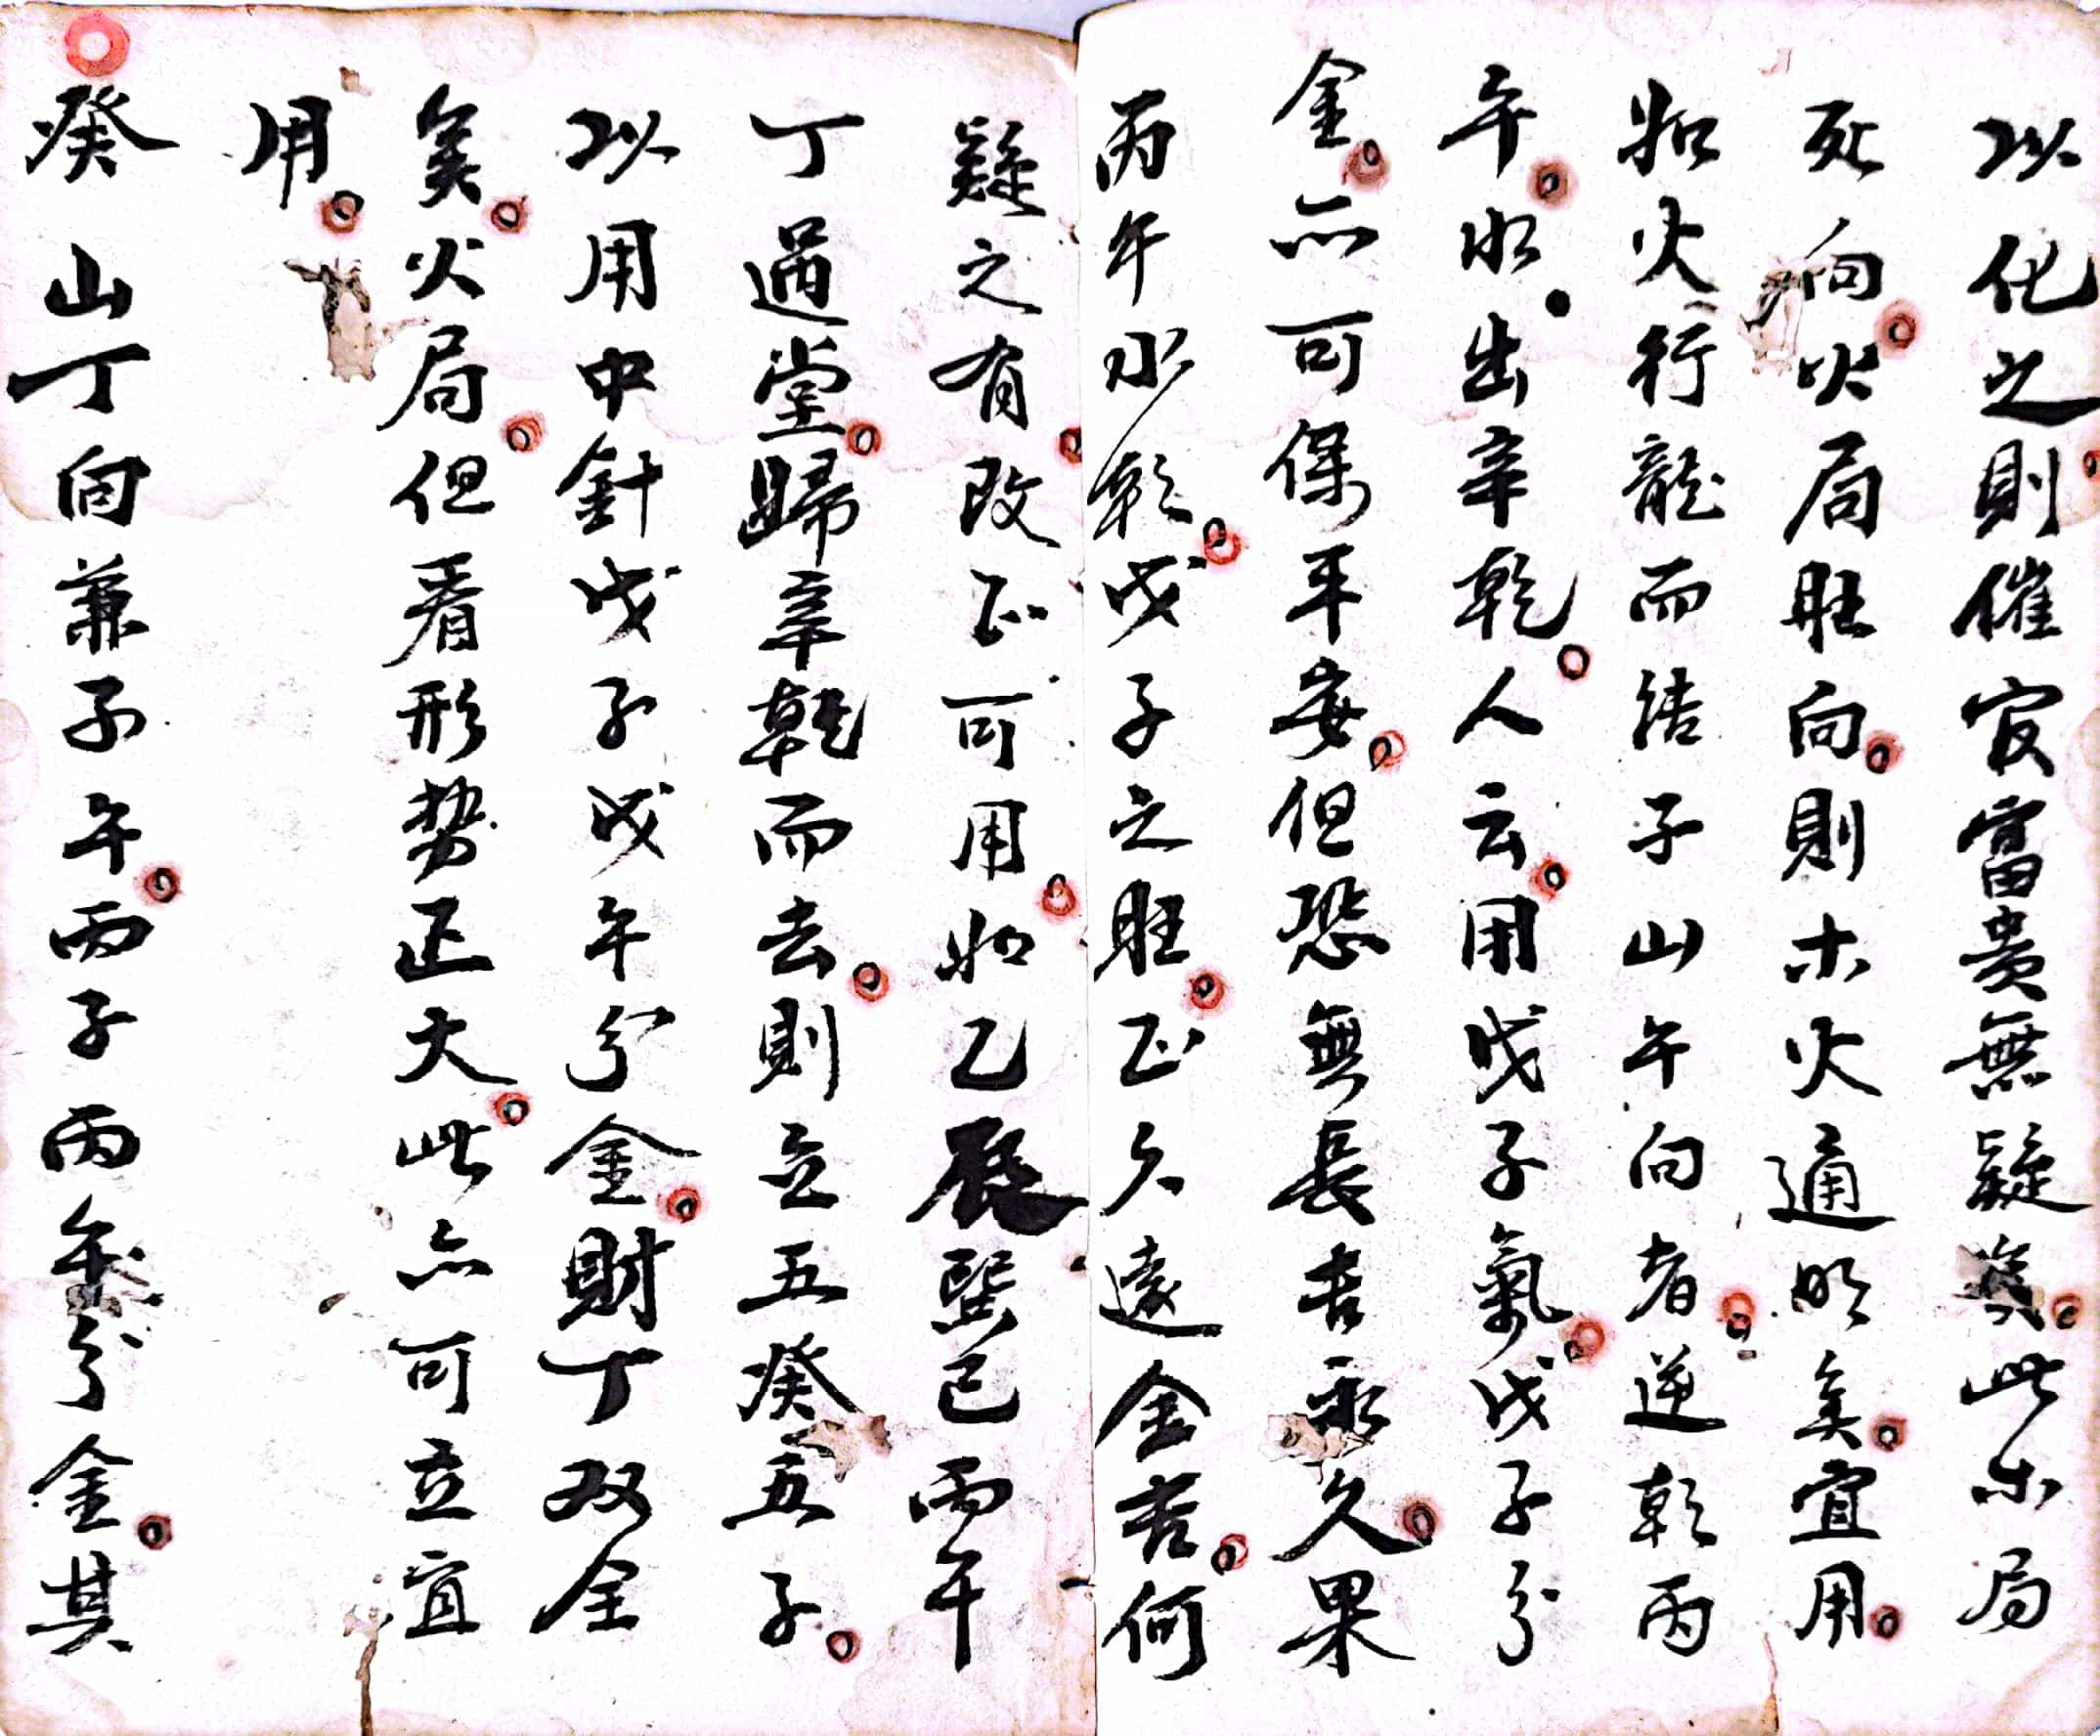 以化之則催官富貴無疑矣此木局
死向火局旺向則木火通明矣宜用
如火行龍而結子山午向者逆乾丙
午水出辛乾人云用戊子氣戊子分
金亦可保平安但恐無長吉永久果
丙午水乾戊子之旺正久遠金吉何
疑之有改正可用如乙辰巽巳丙午
丁過堂歸辛乾而去則立五癸五子
以用中針戊子戊午分金財丁双全
矣火局但看形势正大此亦可立宜
用
癸山丁向兼子午丙子丙午分金其